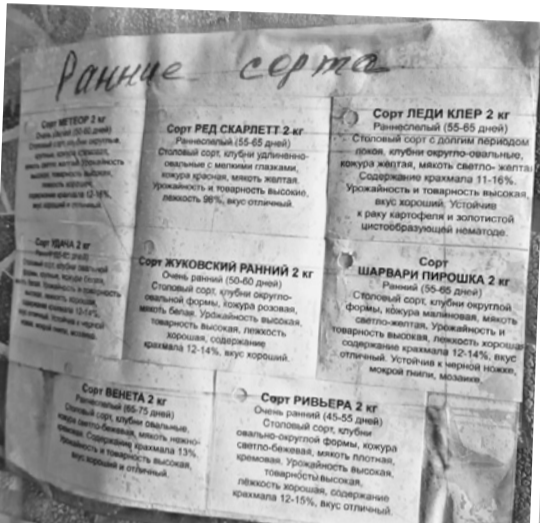 Ранние сорта
Сорт МЕТЕОР 2 кг
Очень ранний (50-60 дней)
Столовый сорт, клубни округлые,
высокая товарность,
хорошая,
содержание крахмала 12-16%,
вкус хороший и отличный.
Сорт РЕД СКАРЛЕТТ 2 кг
Раннеспелый (55-65 дней)
Столовый сорт, клубни удлиненно-
овальные с мелкими глазками,
кожура красная, мякоть желтая.
Урожайность и товарность высокие,
лежкость 98%, вкус отличный.
Сорт ЛЕДИ КЛЕР 2 кг
Раннеспелый (55-65 дней)
Столовый сорт с долгим периодом
покоя, клубни округло-овальные,
кожура желтая, мякоть светло- желтая
Содержание крахмала 11-16%.
Урожайность и товарность высокая,
вкус хороший. Устойчив
к раку картофеля и золотистой
цистообразующей нематоде.
Сорт УДАЧА 2 кг
Столовый сорт, клубни овальной
Сорт ЖУКОВСКИЙ РАННИЙ 2 кг
Очень ранний (50-60 дней)
Столовый сорт, клубни округло-
овальной формы, кожура розовая,
мякоть белая. Урожайность высокая,
товарность высокая, лежкость
хорошая, содержание
крахмала 12-14%, вкус хороший.
Сорт
ШАРВАРИ ПИРОШКА 2 кг
Ранний (55-65 дней)
Столовый сорт, клубни округлой
формы, кожура малиновая, мякоть
светло-желтая. Урожайность и
товарность высокая, лежкость хорошая
содержание крахмала 12-14%, вкус
отличный. Устойчив к черной ножке,
мокрой гнили, мозаике.
Сорт ВЕНЕТА 2 кг
Раннеспелый (65-75 дней)
Столовый сорт, клубни овальные,
кожура светло-бежевая, мякоть нежно-
кремовая. Содержание крахмала 13%.
Урожайность и товарность высокая,
вкус хороший и отличный.
Сорт РИВЬЕРА 2 кг
Очень ранний (45-55 дней)
Столовый сорт, клубни
овально-округлой формы, кожура
светло-бежевая, мякоть плотная,
кремовая. Урожайность высокая,
товарность высокая,
лёжкость хорошая, содержание
крахмала 12-15%, вкус отличный.